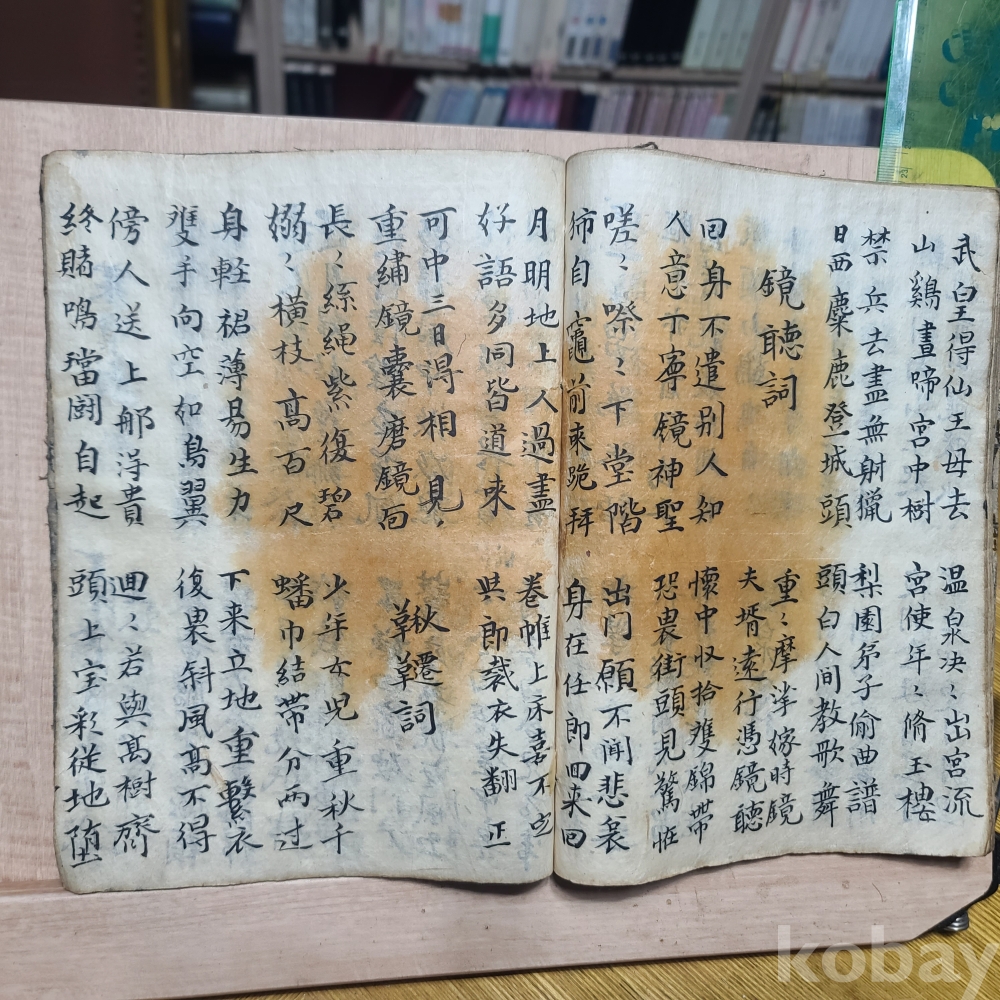 武皇得仙王母去
山鷄晝啼宮中樹
温泉决〻出宮流
宮使年〻脩玉樓
禁兵去盡無射獵
日西麋鹿登城頭
梨園弟子偷曲譜
頭白人间教歌舞
鏡聴詞
重〻摩挲嫁時鏡
夫壻遠行憑鏡聴
回身不遣别人知
人意丁寧鏡神聖
懷中収拾雙錦帶
恐畏街頭見驚恠
嗟〻嚓〻下堂階
自竈前来跪拜
出门願不聞悲哀
身在任郎回来回
月明地上人過盡
好語多同皆道来
卷帷上床喜不定
與郎裁衣失翻正
可中三日得相見
重繡鏡囊磨鏡面
秋韆詞
長〻絲繩紫復碧
嫋〻橫枝高百尺
少年女児重秋千
蟠巾結帶分兩过
身輕裙薄易生力
雙手向空如鳥翼
下来立地重繫衣
復畏斜風高不得
傍人送上那得貴
終賭鳴璫鬪自起
迴〻若與高樹齊
頭上宝彩從地堕
kobay